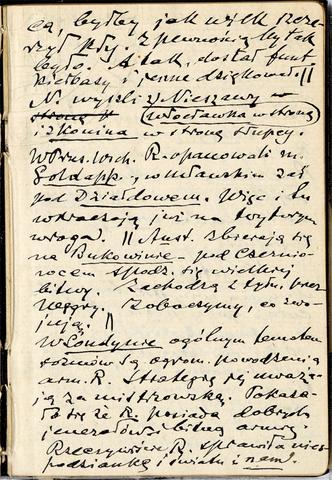 ca, byłby jak wilk szcze-
rzył kły. Z pewnością by tak
było. A tak, dostał funt
kiełbasy i jeszcze dziękował. ||
N. wyszli z Nieszawy w
stronę Włocławka w stronę
i z Konina w stronę Słupcy.
W Prus. Wsch. R. opanowali m.
Goldapp, w Mławskim zaś
pod Działdowem. Więc i tu
wkraczają już na terytorjum
wroga. || Aust. zbierają się
na Bukowinie - pod Czernio-
wcem spodz. się wielkiej
bitwy. Zachodzą z tyłu przez
Węgry. Zobaczymy, co zwo-
jują. ||
W Londynie ogólnym tematem
rozmów są ogrom. powodzenia
arm. R. Strategję jej uważa-
ją za mistrzowską. Pokaza-
ło się że R. posiada dobrych
jenerałów i bitną armię.
Rzeczywiście R. sprawiła nies-
podziankę i światu i nam!